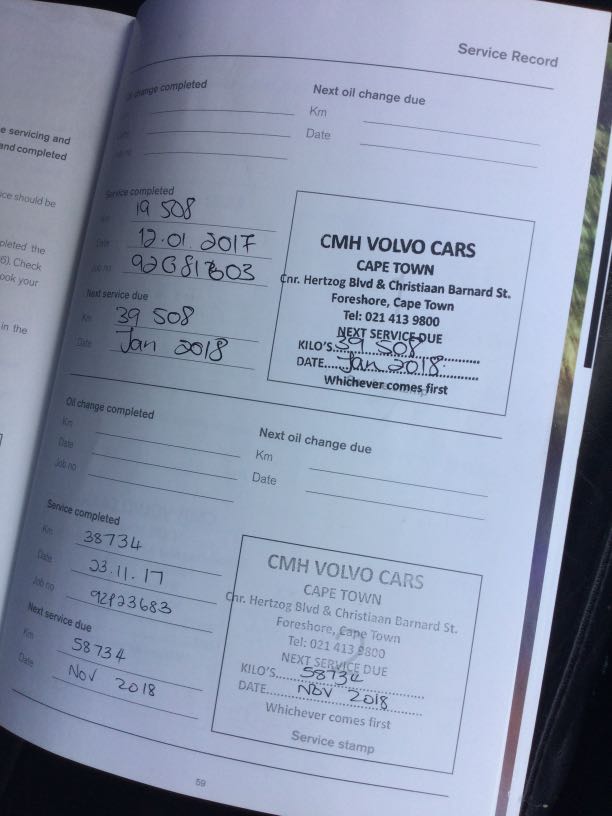 Service Record
e servicing and
and completed
ice should be
pleted the
6). Check
ook your
in the
Oil change completed
Next oil change due
Km
Date
Job no
Km
Date
Service completed
Km 19 508
Date 12.01.2017
Job no
Next service due
Km 39 508
Date Jan 2018
CMH VOLVO CARS
CAPE TOWN
Cnr. Hertzog Blvd & Christiaan Barnard St.
Foreshore, Cape Town
Tel: 021 413 9800
NEXT SERVICE DUE
KILO'S...39 508
DATE...Jan 2018
Whichever comes first
Oil change completed
Km
Date
Job no
Next oil change due
Km
Date
Service completed
Km 38734
Date 23.11.17
Job no
Next service due
Km 58734
Date Nov 2018
CMH VOLVO CARS
CAPE TOWN
Cnr. Hertzog Blvd & Christiaan Barnard St.
Foreshore, Cape Town
Tel: 021 413 9800
NEXT SERVICE DUE
KILO'S...58734
DATE...NOV 2018
Whichever comes first
Service stamp
59